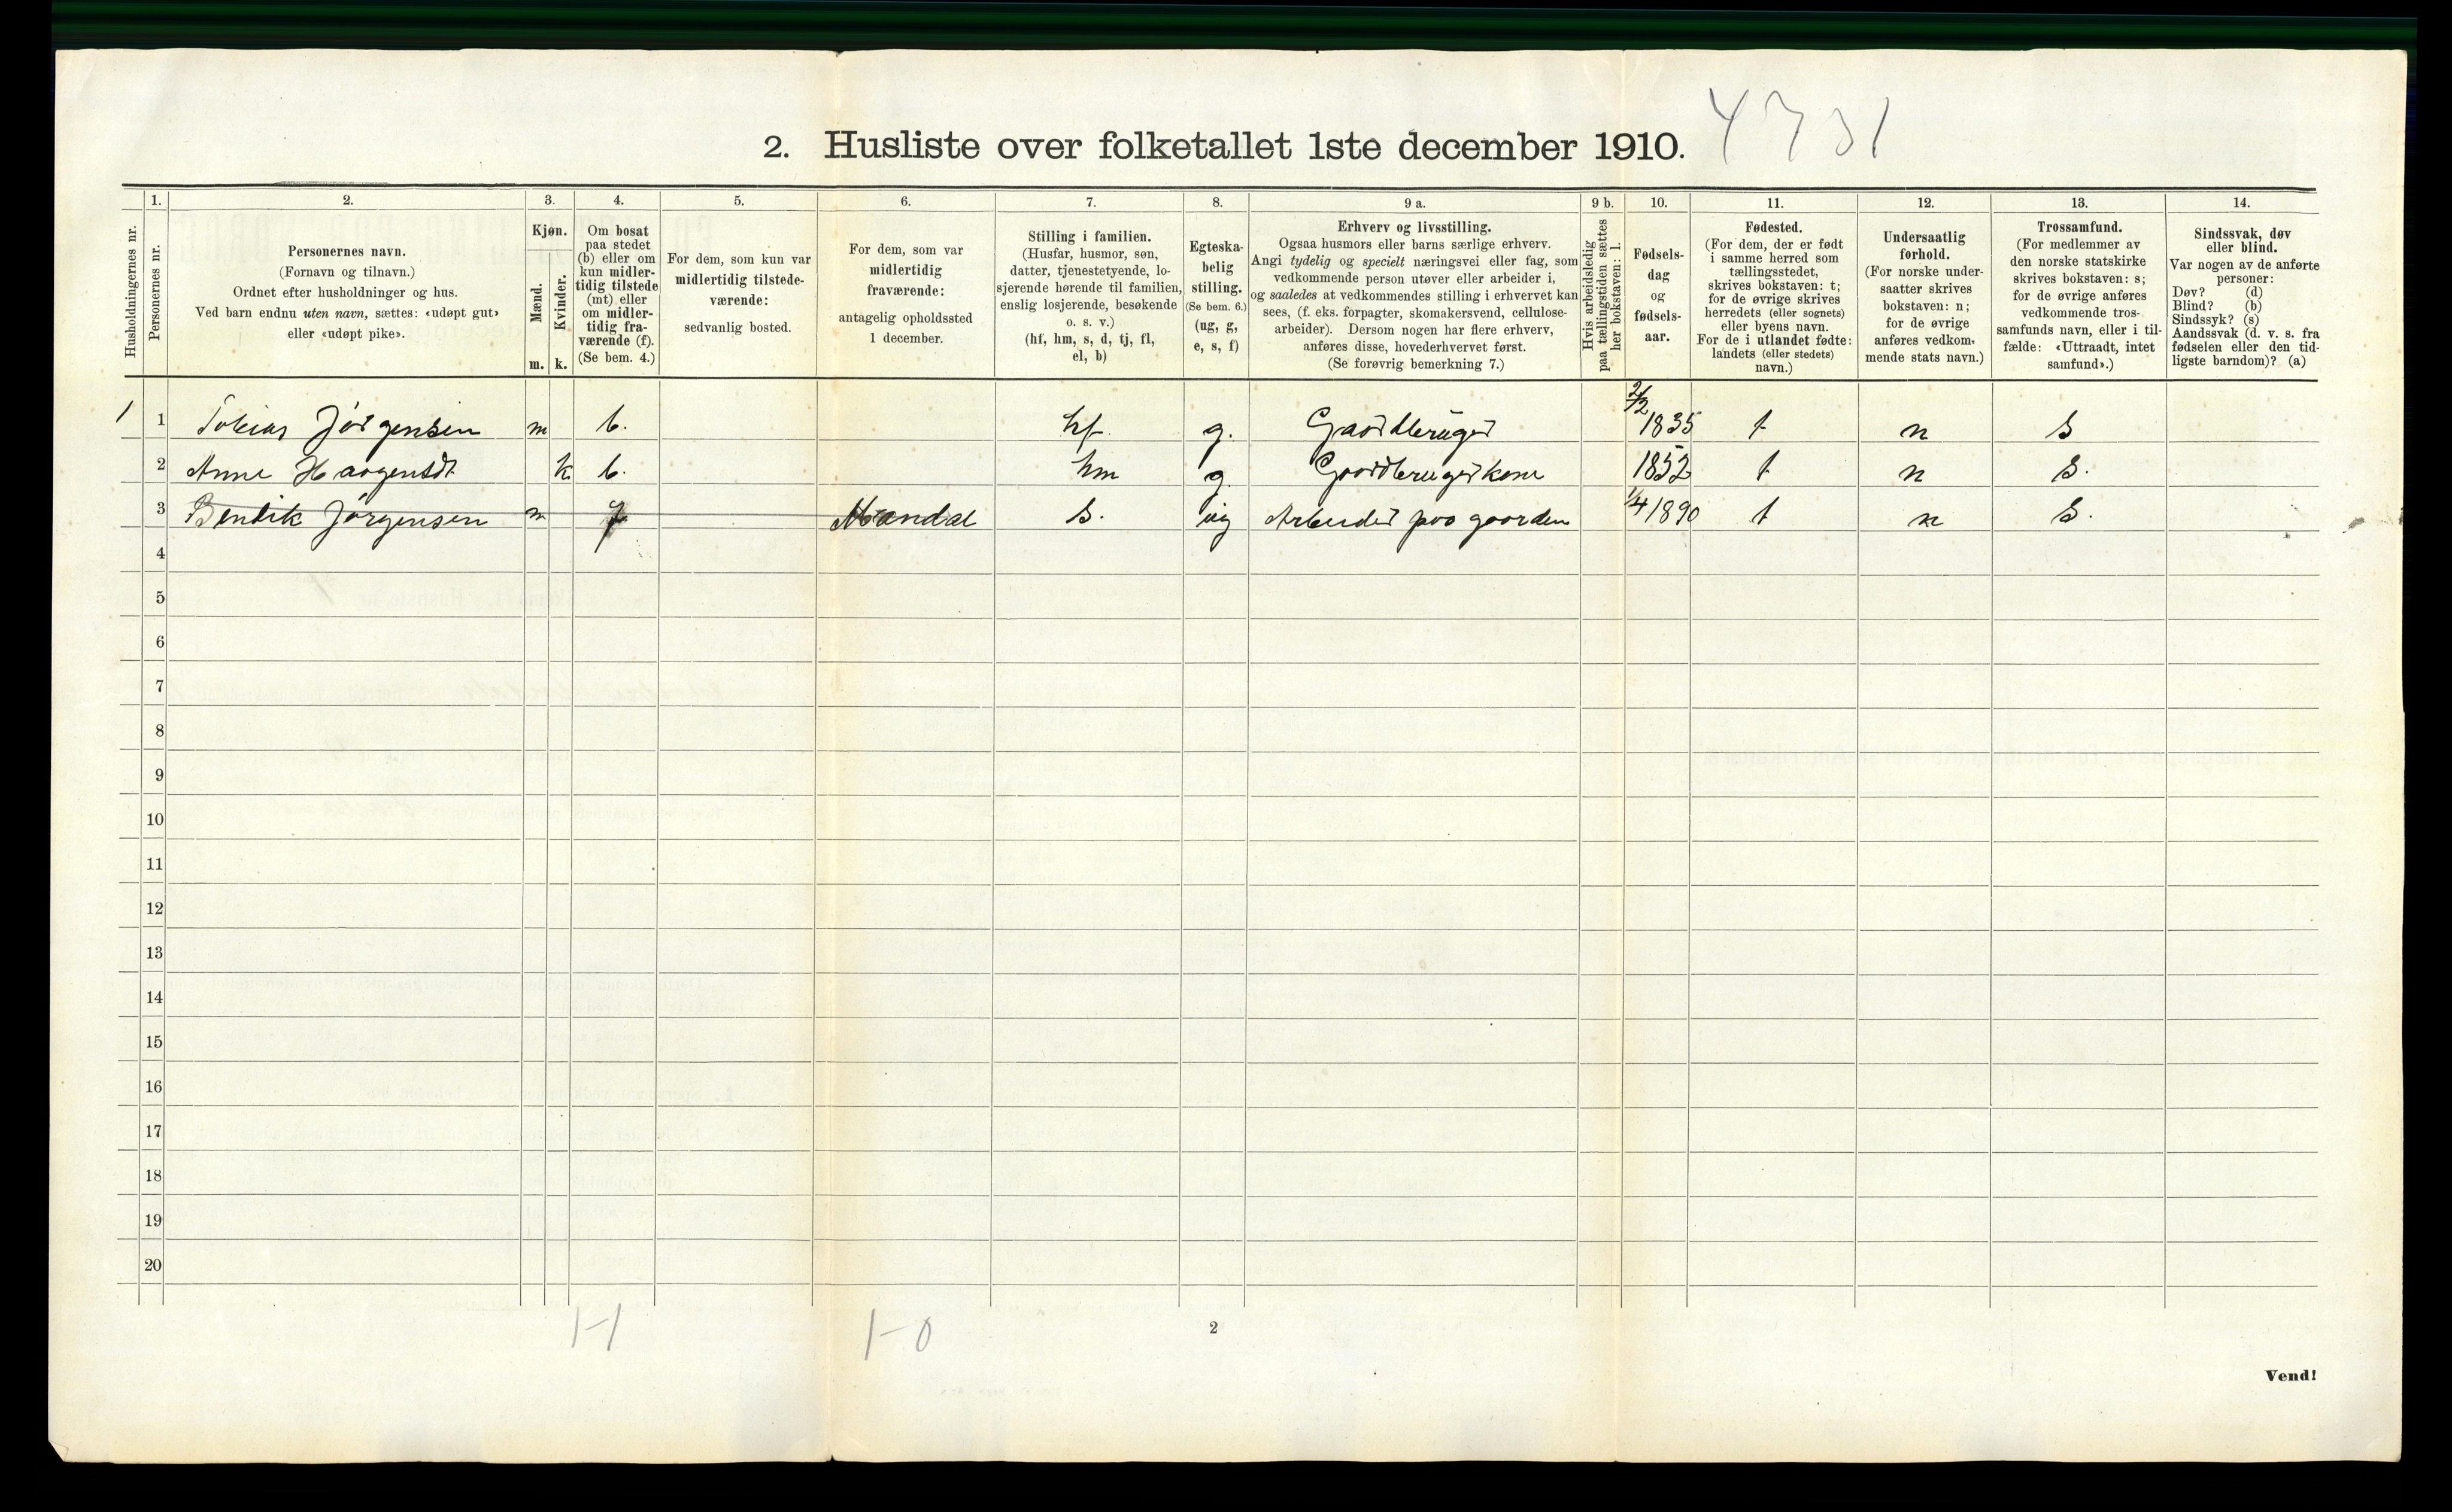 2. Husliste over folketallet 1ste december 1910. 4731
1. 2. 3. 4. 5. 6. 7. 8. 9 a. 9 b. 10. 11. 12. 13. 14.
Husholdningernes nr.
Personernes nr.
Personernes navn.
(Fornavn og tilnavn.)
Ordnet efter husholdninger og hus.
Ved barn endnu uten navn, sættes: «udøpt gut»
eller «udøpt pike».
Kjøn.
Mænd.
m.
Kvinder.
k.
Om bosat
paa stedet
(b) eller om
kun midler-
tidig tilstede
(mt) eller
om midler-
tidig fra-
værende (f).
(Se bem. 4.)
For dem, som kun var
midlertidig tilstede-
værende:
sedvanlig bosted.
For dem, som var
midlertidig
fraværende:
antagelig opholdssted
1 december.
Stilling i familien.
(Husfar, husmor, søn,
datter, tjenestetyende, lo-
sjerende hørende til familien,
enslig losjerende, besøkende
o. s. v.)
(hf, hm, s, d, tj, fl,
el, b)
Egteska-
belig
stilling.
(Se bem. 6.)
(ug, g,
e, s, f)
Erhverv og livsstilling.
Ogsaa husmors eller barns særlige erhverv.
Angi tydelig og specielt næringsvei eller fag, som
vedkommende person utøver eller arbeider i,
og saaledes at vedkommendes stilling i erhvervet kan
sees, (f. eks. forpagter, skomakersvend, cellulose-
arbeider). Dersom nogen har flere erhverv,
anføres disse, hovederhvervet først.
(Se forøvrig bemerkning 7.)
Hvis arbeidsledig
paa tællingstiden sættes
her bokstaven: l.
Fødsels-
dag
og
fødsels-
aar.
Fødested.
(For dem, der er født
i samme herred som
tællingsstedet,
skrives bokstaven: t;
for de øvrige skrives
herredets (eller sognets)
eller byens navn.
For de i utlandet fødte:
landets (eller stedets)
navn.)
Undersaatlig
forhold.
(For norske under-
saatter skrives
bokstaven: n;
for de øvrige
anføres vedkom-
mende stats navn.)
Trossamfund.
(For medlemmer av
den norske statskirke
skrives bokstaven: s;
for de øvrige anføres
vedkommende tros-
samfunds navn, eller i til-
fælde: «Uttraadt, intet
samfund».)
Sindssvak, døv
eller blind.
Var nogen av de anførte
personer:
Døv? (d)
Blind? (b)
Sindssyk? (s)
Aandssvak (d. v. s. fra
fødselen eller den tid-
ligste barndom)? (a)
1 1 Tobias Jørgensen m b. hf g. Gaardbruger 2/2 1835 t n s
2 Anne k b. hm g. Gaardbrugerkone 1852 t n s.
3 Bendik Jørgensen m f Mandal s. ug Arbeider paa gaarden 1/4 1890 t n s.
4
5
6
7
8
9
10
11
12
13
14
15
16
17
18
19
20
1-1 1-0
2
Vend!